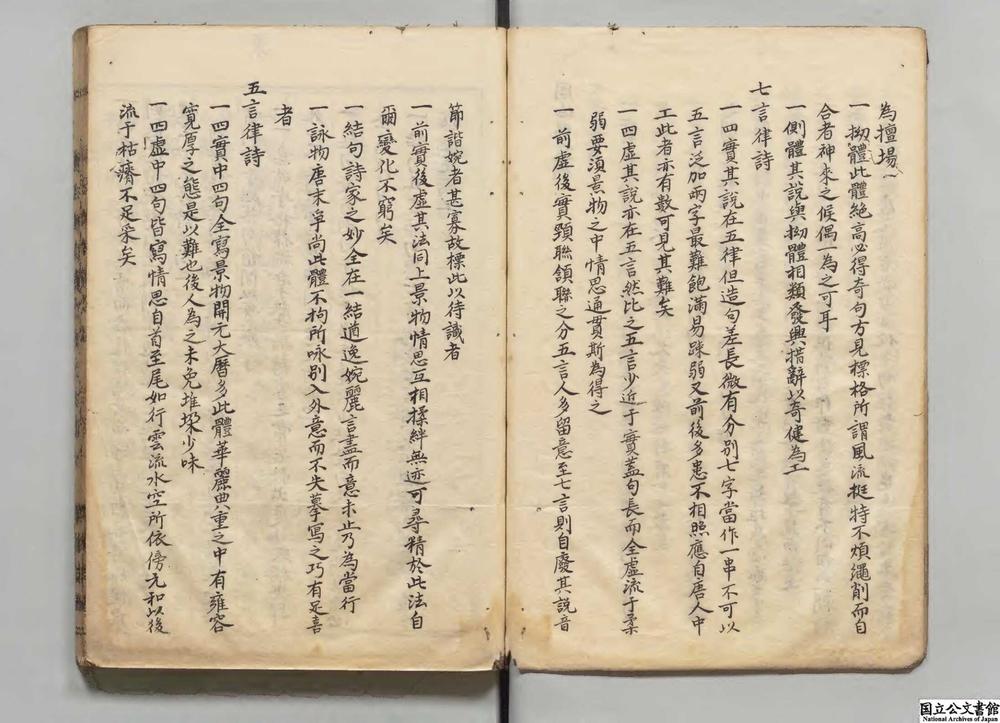 為擅場
一 拗體此體絕高必得奇句方見標格所謂風流挺特不煩繩削而自
合者神來之候偶一為之可耳
一 側體其說與拗體相類發興措辭以奇健為工
七言律詩
一 四實其說在五律但造句差長微有分別七字當作一串不可以
五言泛加兩字最難飽滿易踈弱又前後多患不相照應自唐人中
工此者亦有數可見其難矣
一 四虛其說亦在五言然比之五言少近于實蓋句長而全虛流于柔
弱要須景物之中情思通貫斯為得之
一 前虛後實頸聯頷聯之分五言人多留意至七言則自廢其說音
節諧婉者甚寡故標此以待識者
一 前實後虛其法同上景物情思互相揉絆無迹可尋精於此法自
爾變化不窮矣
一 結句詩家之妙全在一結遒逸婉麗言盡而意未止乃為當行
一 詠物唐末爭尚此體不拘所咏別入外意而不失摹寫之巧有足喜
者
五言律詩
一 四實中四句全寫景物開元大曆多此體華麗典重之中有雍容
寬厚之態是以難也後人為之未免堆垛少味
一 四虛中四句皆寫情思自首至尾如行雲流水空所依傍元和以後
流于枯瘠不足采矣
国立公文書館
National Archives of Japan